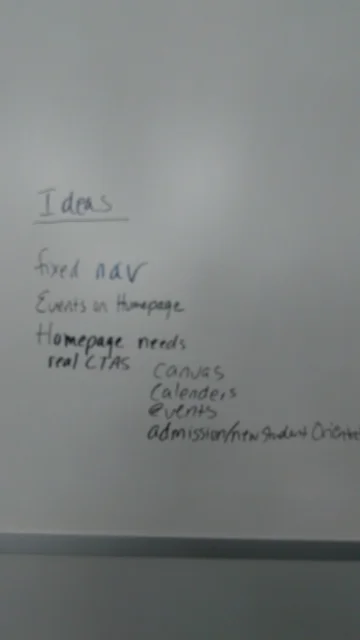 Ideas
fixed nav
Events on Homepage
Homepage needs
real CTAS
Canvas
Calenders
events
admission/new Student Orientat